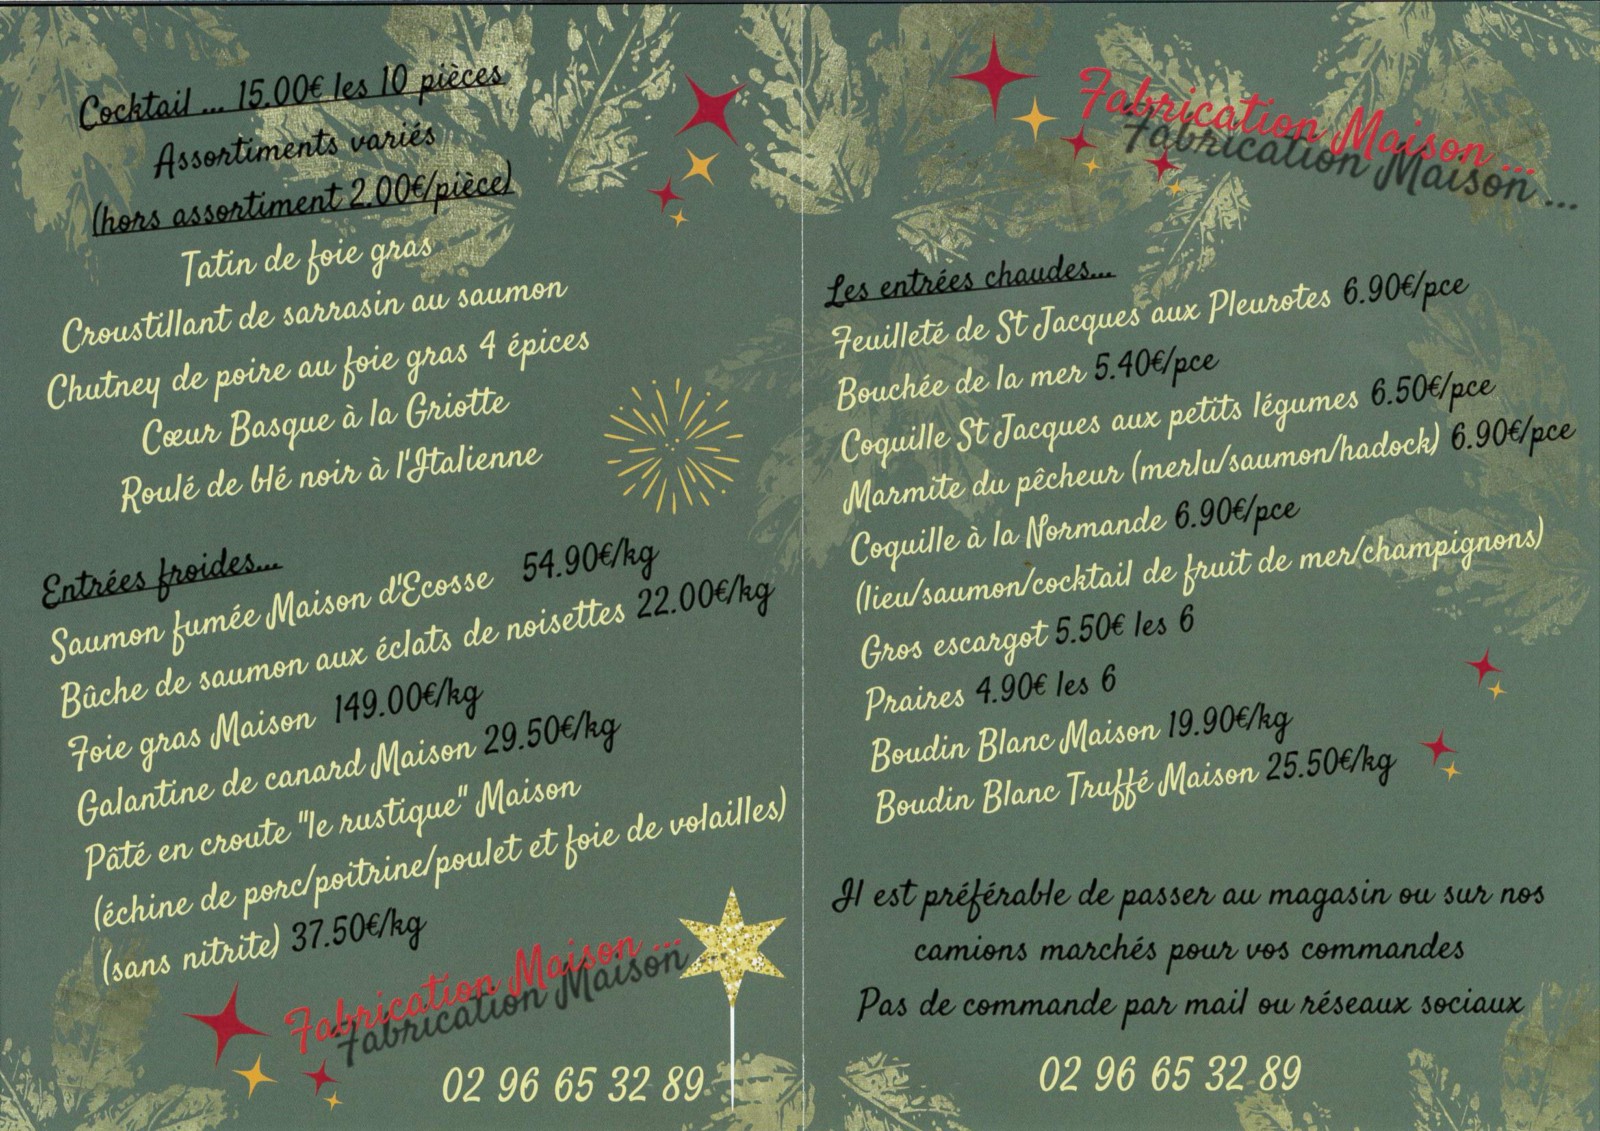 Cocktail ... 15.00€ les 10 pièces
Assortiments variés
(hors assortiment 2.00€/pièce)
Tatin de foie gras
Croustillant de sarrasin au saumon
Chutney de poire au foie gras 4 épices
Cœur Basque à la Griotte
Roulé de blé noir à l'Italienne
Entrées froides...
Saumon fumée Maison d'Ecosse 54.90€/kg
Bûche de saumon aux éclats de noisettes 22.00€/kg
Foie gras Maison 149.00€/kg
Galantine de canard Maison 29.50€/kg
Pâté en croute "le rustique" Maison
(échine de porc/poitrine/poulet et foie de volailles)
(sans nitrite) 37.50€/kg
Fabrication Maison ...
Fabrication Maison ...
02 96 65 32 89
Fabrication Maison ...
Fabrication Maison ...
Les entrées chaudes...
Feuilleté de St Jacques aux Pleurotes 6.90€/pce
Bouchée de la mer 5.40€/pce
Coquille St Jacques aux petits légumes 6.50€/pce
Marmite du pêcheur (merlu/saumon/hadock) 6.90€/pce
Coquille à la Normande 6.90€/pce
(lieu/saumon/cocktail de fruit de mer/champignons)
Gros escargot 5.50€ les 6
Praires 4.90€ les 6
Boudin Blanc Maison 19.90€/kg
Boudin Blanc Truffé Maison 25.50€/kg
Il est préférable de passer au magasin ou sur nos
camions marchés pour vos commandes
Pas de commande par mail ou réseaux sociaux
02 96 65 32 89